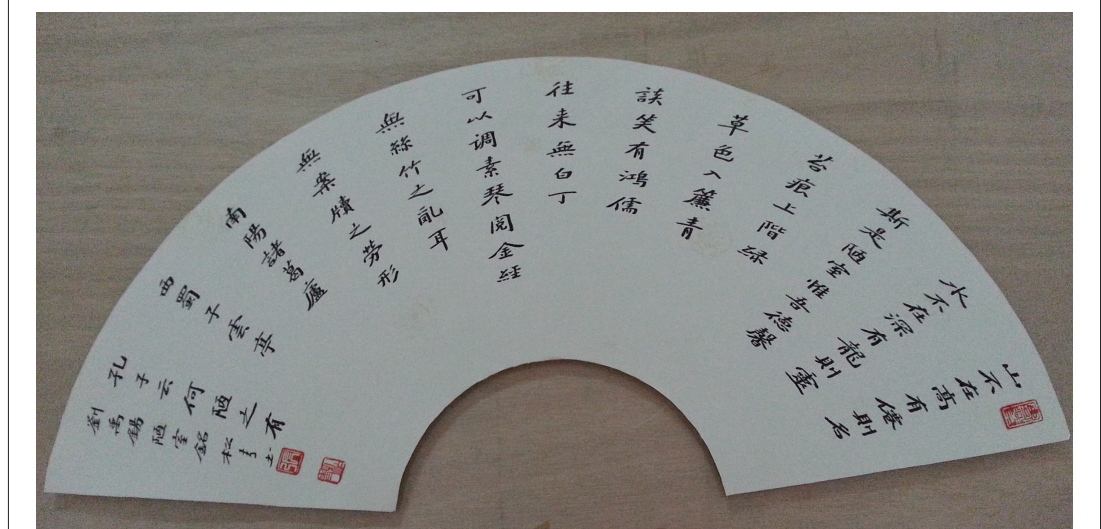 山不在高有僊則名
水不在深有龍則靈
斯是陋室惟吾德馨
苔痕上階緑
草色入簾青
談笑有鴻儒
往来無白丁
可以调素琴閲金經
無絲竹之亂耳
無案牘之勞形
南陽諸葛廬
西蜀子雲亭
孔子云何陋之有
劉禹錫陋室銘松青书